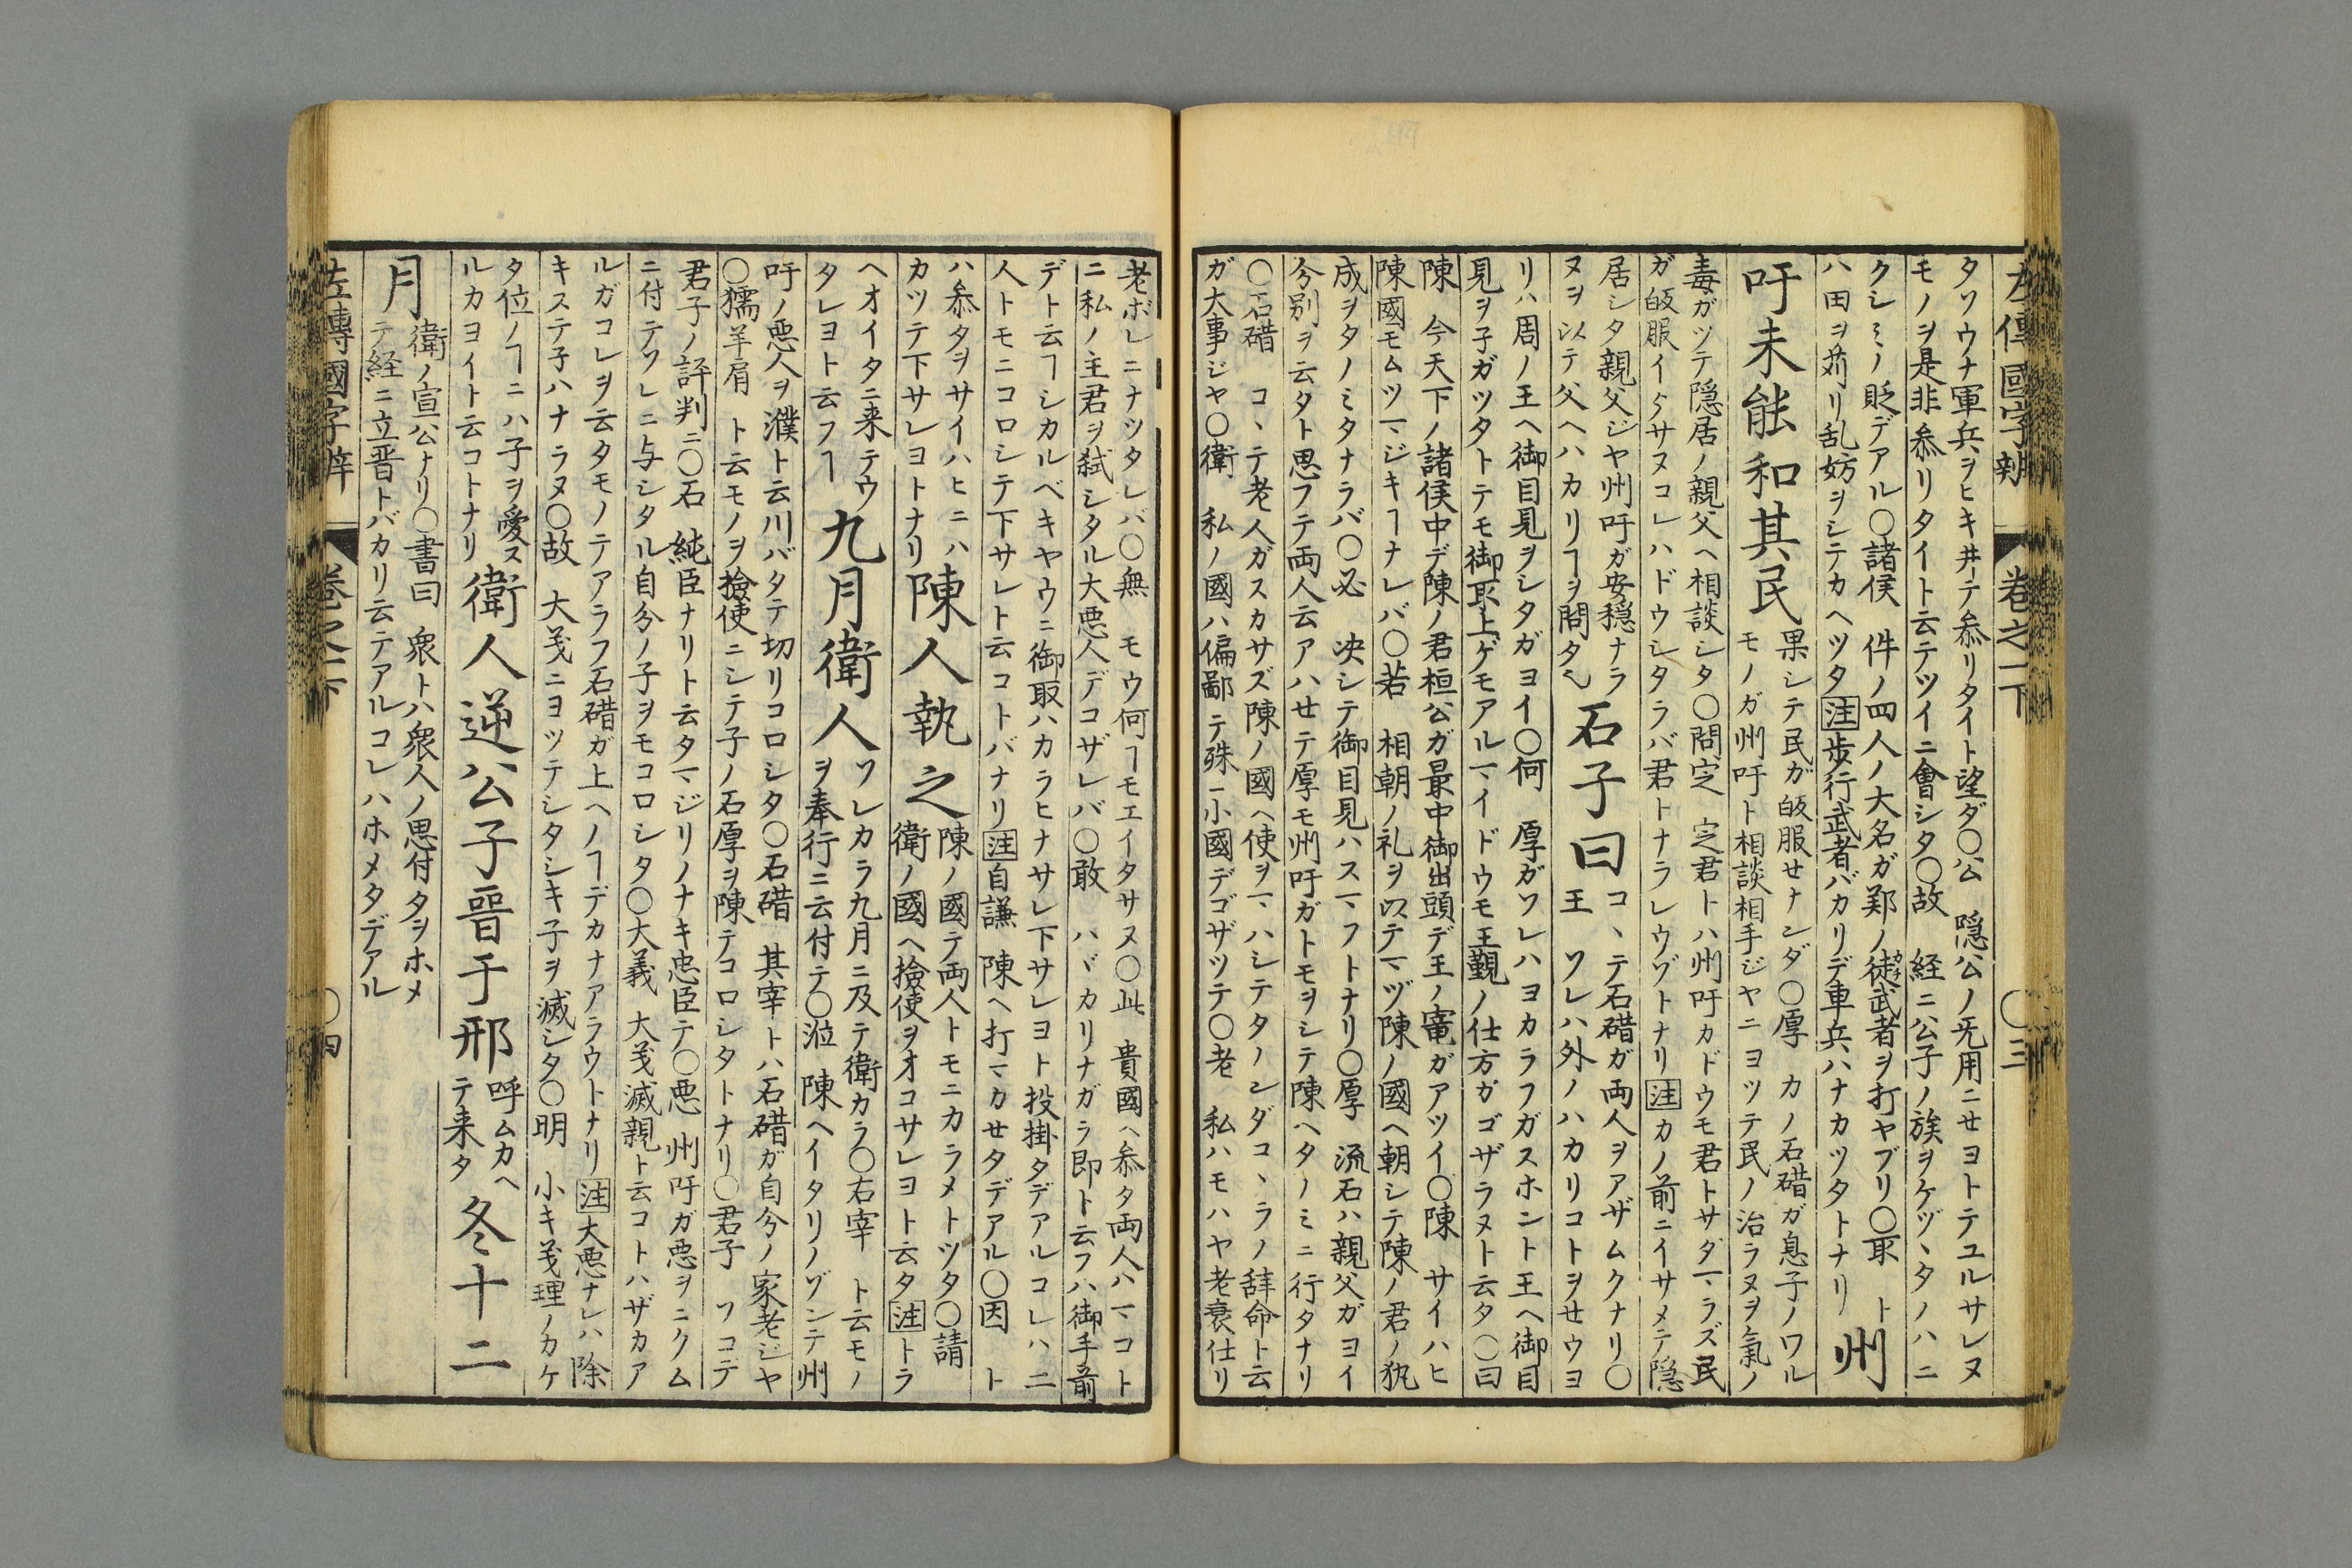 左傳國字辨 卷之一下 〇三
タソウナ軍兵ヲヒキ井テ叅リタイト望ダ〇公 隠公ノ旡用ニセヨトテユルサレヌ
モノヲ是非叅リタイト云テツイニ會シタ〇故 経ニ公子ノ族ヲケヅヽタノハニ
クシミノ貶デアル〇諸侯 件ノ四人ノ大名ガ鄭ノ徒武者ヲ打ヤブリ〇取 ト
ハ田ヲ苅リ乱妨ヲシテカヘツタ注歩行武者バカリデ車兵ハナカツタトナリ
州
吁未能和其民
果シテ民ガ皈服セナンダ〇厚 カノ石碏ガ息子ノワル
モノガ州吁ト相談相手ジヤニヨツテ民ノ治ラヌヲ氣ノ
毒ガツテ隠居ノ親父ヘ相談シタ〇問定 定君トハ州吁カドウモ君トサダマラズ民
ガ皈服イタサヌコレハドウシタラバ君トナラレウゾトナリ注カノ前ニイサメテ隠
居シタ親父ジヤ州吁ガ安穏ナラ
ヌヲ以テ父ヘハカリヿヲ問タ也
石子曰
コヽテ石碏ガ両人ヲアザムクナリ〇
王 ソレハ外ノハカリコトヲせウヨ
リハ周ノ王ヘ御目見ヲシタガヨイ〇何 厚ガソレハヨカラフガスホント王ヘ御目
見ヲ子ガツタトテモ御取上ゲモアルマイドウモ王覲ノ仕方ガゴザラヌト云タ〇曰
陳 今天下ノ諸侯中デ陳ノ君桓公ガ最中御出頭デ王ノ寵ガアツイ〇陳 サイハヒ
陳國モムツマジキヿナレバ〇若 相朝ノ礼ヲ以テマヅ陳ノ國ヘ朝シテ陳ノ君ノ執
成ヲタノミタナラバ〇必 决シテ御目見ハスマフトナリ〇厚 流石ハ親父ガヨイ
分別ヲ云タト思フテ両人云アハせテ厚モ州吁ガトモヲシテ陳ヘタノミニ行タナリ
〇石碏 コヽテ老人ガスカサズ陳ノ國ヘ使ヲマハシテタノンダコヽラノ辞命ト云
ガ大事ジヤ〇衛 私ノ國ハ偏鄙テ殊ニ小國デゴザツテ〇老 私ハモハヤ老衰仕リ
老ボレニナツタレバ〇無 モウ何ヿモエイタサヌ〇此 貴國ヘ叅タ両人ハマコト
ニ私ノ主君ヲ弑シタル大悪人デコザレバ〇敢 ハヾカリナガラ即ト云フハ御手前
デト云ヿシカルベキヤウニ御取ハカラヒナサレ下サレヨト投掛タデアルコレハ二
人トモニコロシテ下サレト云コトバナリ注自謙 陳ヘ打マカせタデアル〇因 ト
ハ叅タヲサイハヒニハ
カツテ下サレヨトナリ
陳人執之
陳ノ國テ両人トモニカラメトツタ〇請
衛ノ國ヘ撿使ヲオコサレヨト云タ注トラ
ヘオイタニ来テウ
タレヨト云フヿ
九月衛人
ソレカラ九月ニ及テ衛カラ〇右宰 ト云モノ
ヲ奉行ニ云付テ〇涖 陳ヘイタリノゾンテ州
吁ノ悪人ヲ濮ト云川バタテ切リコロシタ〇石碏 其宰トハ石碏ガ自分ノ家老ジヤ
〇獳羊肩 ト云モノヲ撿使ニシテ子ノ石厚ヲ陳テコロシタトナリ〇君子 ソコデ
君子ノ評判ニ〇石 純臣ナリト云タマジリノナキ忠臣テ〇悪 州吁ガ悪ヲニクム
ニ付テソレニ与シタル自分ノ子ヲモコロシタ〇大義 大义滅親ト云コトハザカア
ルガコレヲ云タモノテアラフ石碏ガ上ヘノヿデカナアラウトナリ注大悪ナレハ除
キステ子ハナラヌ〇故 大义ニヨツテシタシキ子ヲ滅シタ〇明 小キ义理ノカケ
タ位ノヿニハ子ヲ愛ス
ルカヨイト云コトナリ
衛人逆公子晉于邢
呼ムカヘ
テ来タ
冬十二
月
衛ノ宣公ナリ〇書曰 衆トハ衆人ノ思付タヲホメ
テ経ニ立晋トバカリ云テアルコレハホメタデアル
左傳國字辨 卷之一下 〇四